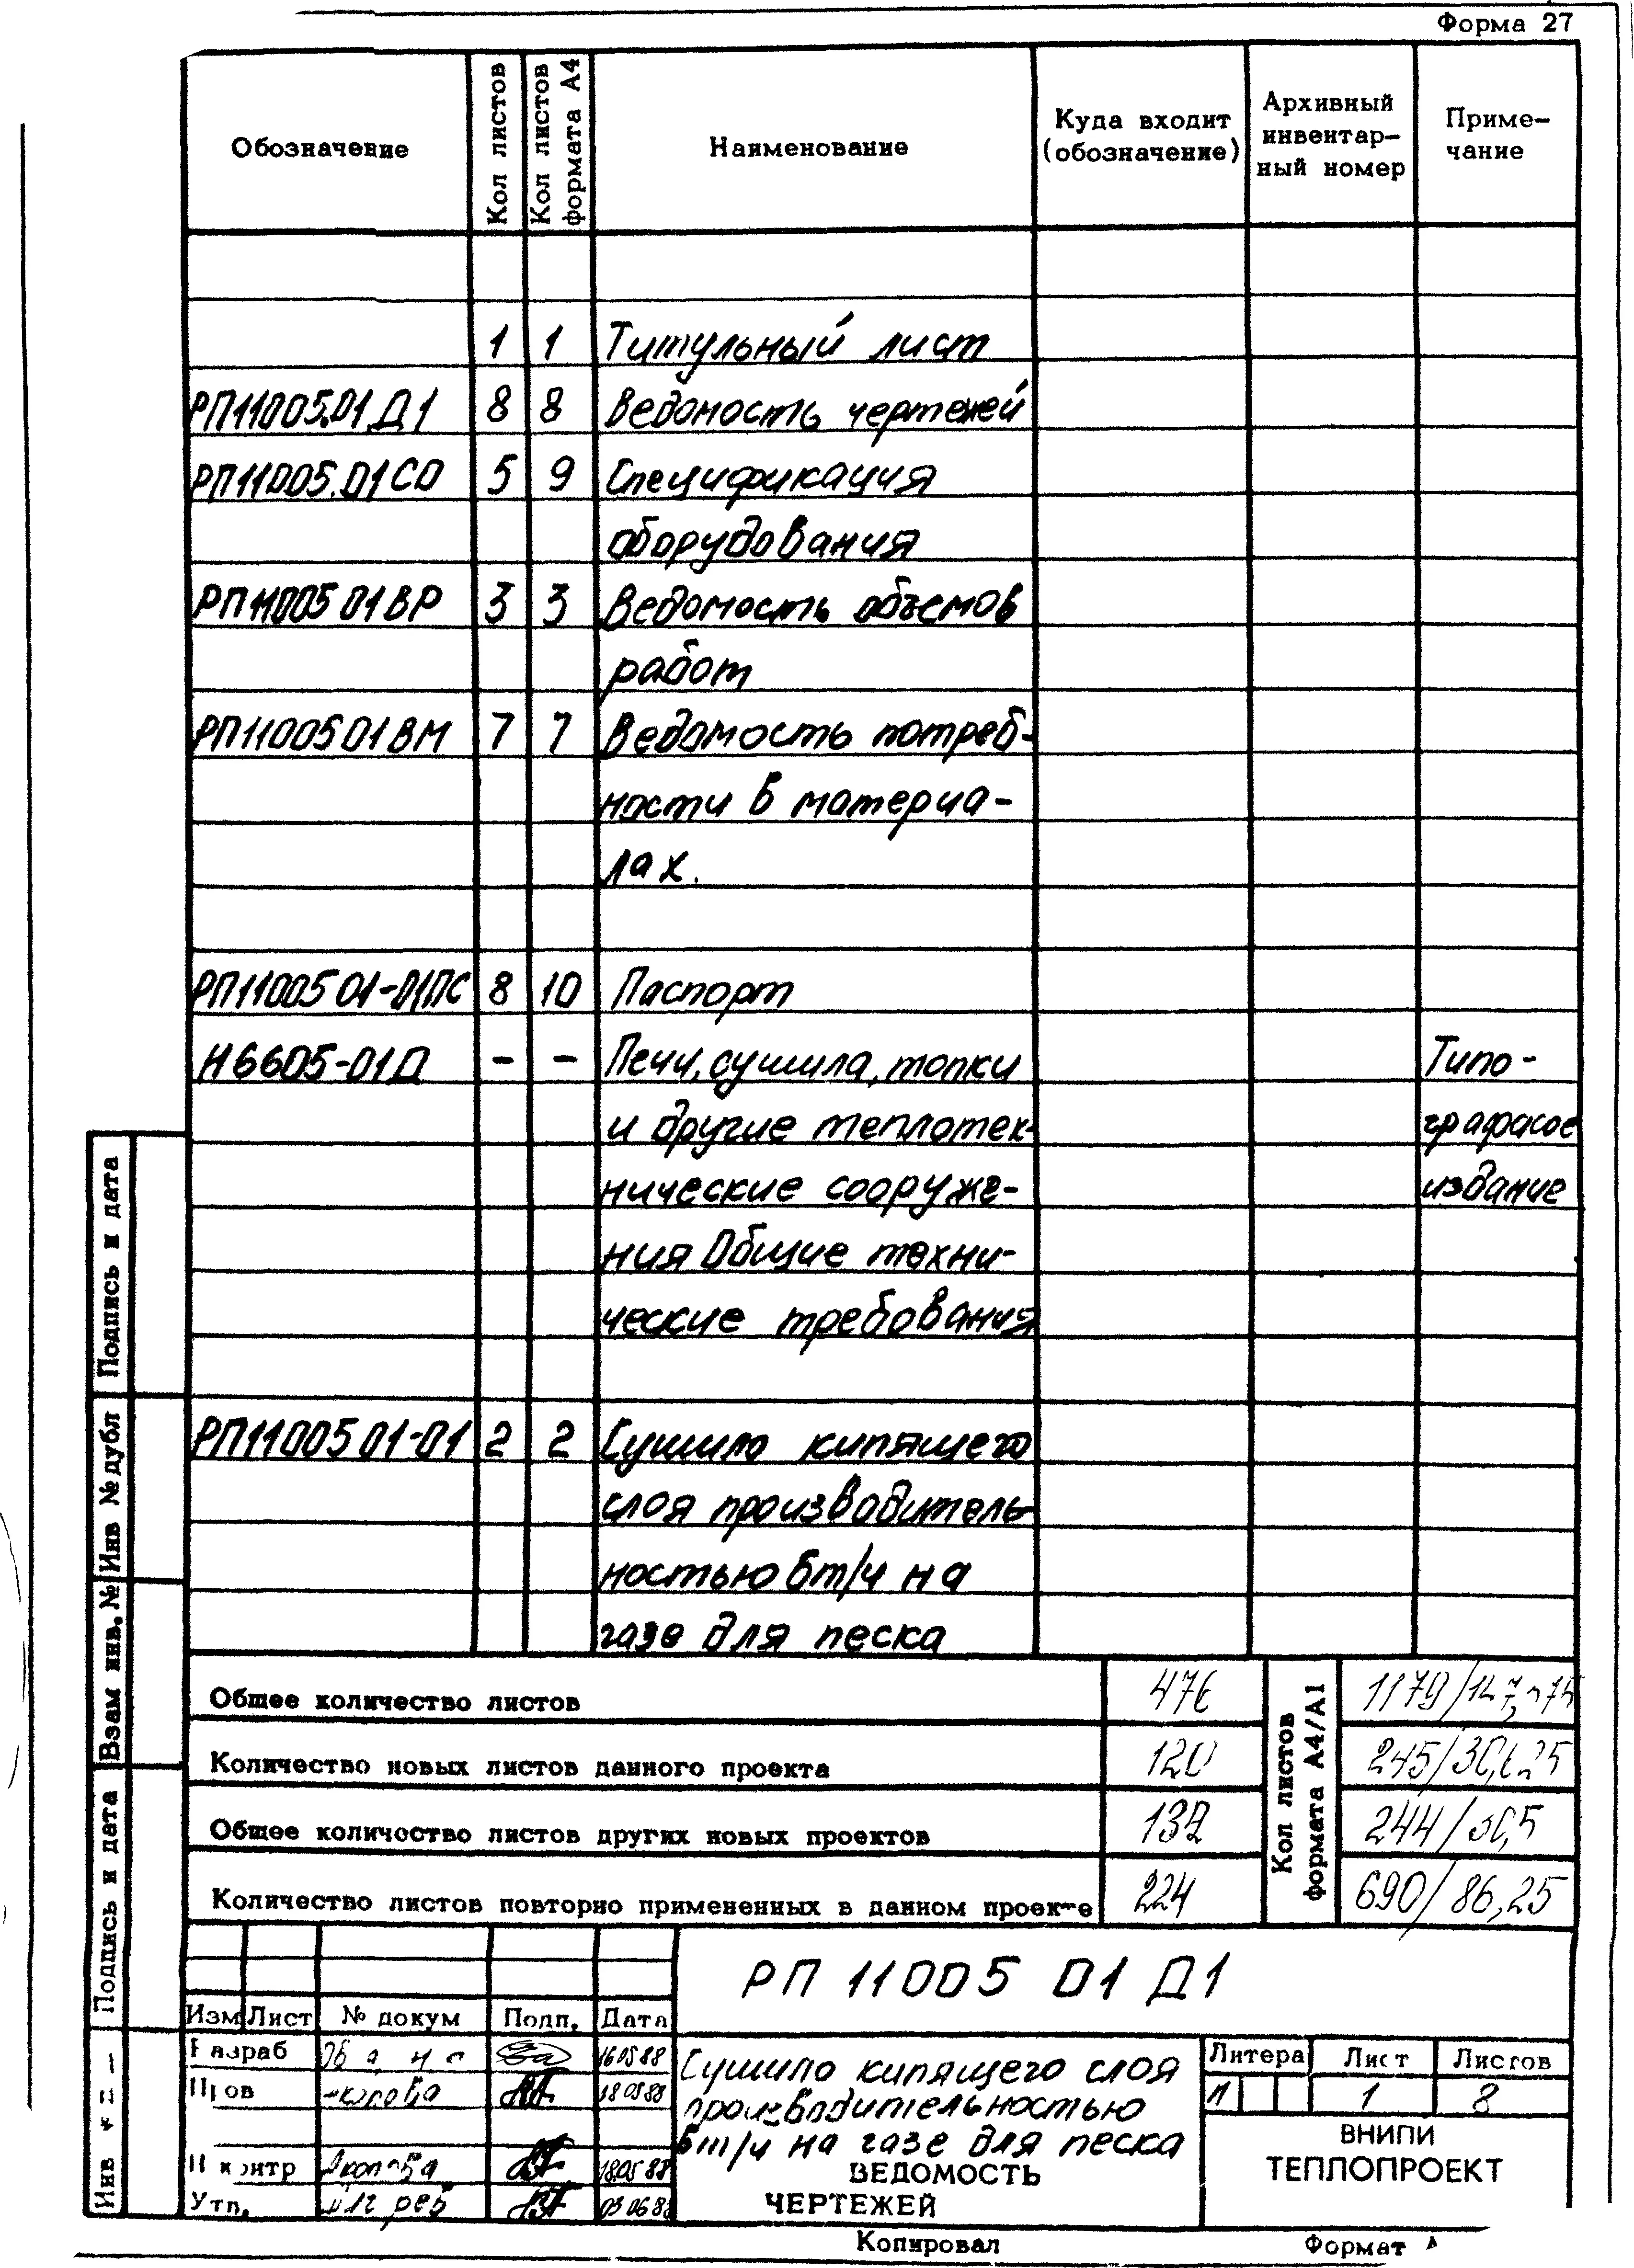 Форма 27
Обозначение
Кол листов
Кол листов формата А4
Наименование
Куда входит (обозначение)
Архивный инвентар-ный номер
Приме-чание
1 1 Титульный лист
РП11005.01.Д1 8 8 Ведомость чертежей
РП11005.01СО 5 9 Спецификация
оборудования
РП11005 01ВР 3 3 Ведомость объемов
работ
РП11005 01ВМ 7 7 Ведомость потреб-
ности в материа-
лах.
РП11005 01-01ПС 8 10 Паспорт
Н6605-01Д - - Печи, сушила, топки Типо-
и другие теплотех-
нические сооруже- издание
ния Общие техни-
ческие требования
РП11005 01-01 2 2 Сушило кипящего
слоя производитель-
ностью 6т/ч на
газе для песка
Общее количество листов 476
Количество новых листов данного проекта 120
Общее количество листов других новых проектов 132
Количество листов повторно примененных в данном проекте 224
Кол листов формата А4/А1
1179/147,375
245/30,625
244/30,5
690/86,25
Подпись и дата
Инв № дубл
Взам инв. №
Подпись и дата
Инв
РП 11005 01 Д1
Изм Лист № докум Подп. Дата
Разраб 16 05 88
Пров 18 05 88
Н контр 18 05 88
Утв. 03 06 88
Сушило кипящего слоя
производительностью
6т/ч на газе для песка
ВЕДОМОСТЬ
ЧЕРТЕЖЕЙ
Литера Лист Листов
1 8
ВНИПИ
ТЕПЛОПРОЕКТ
Копировал Формат